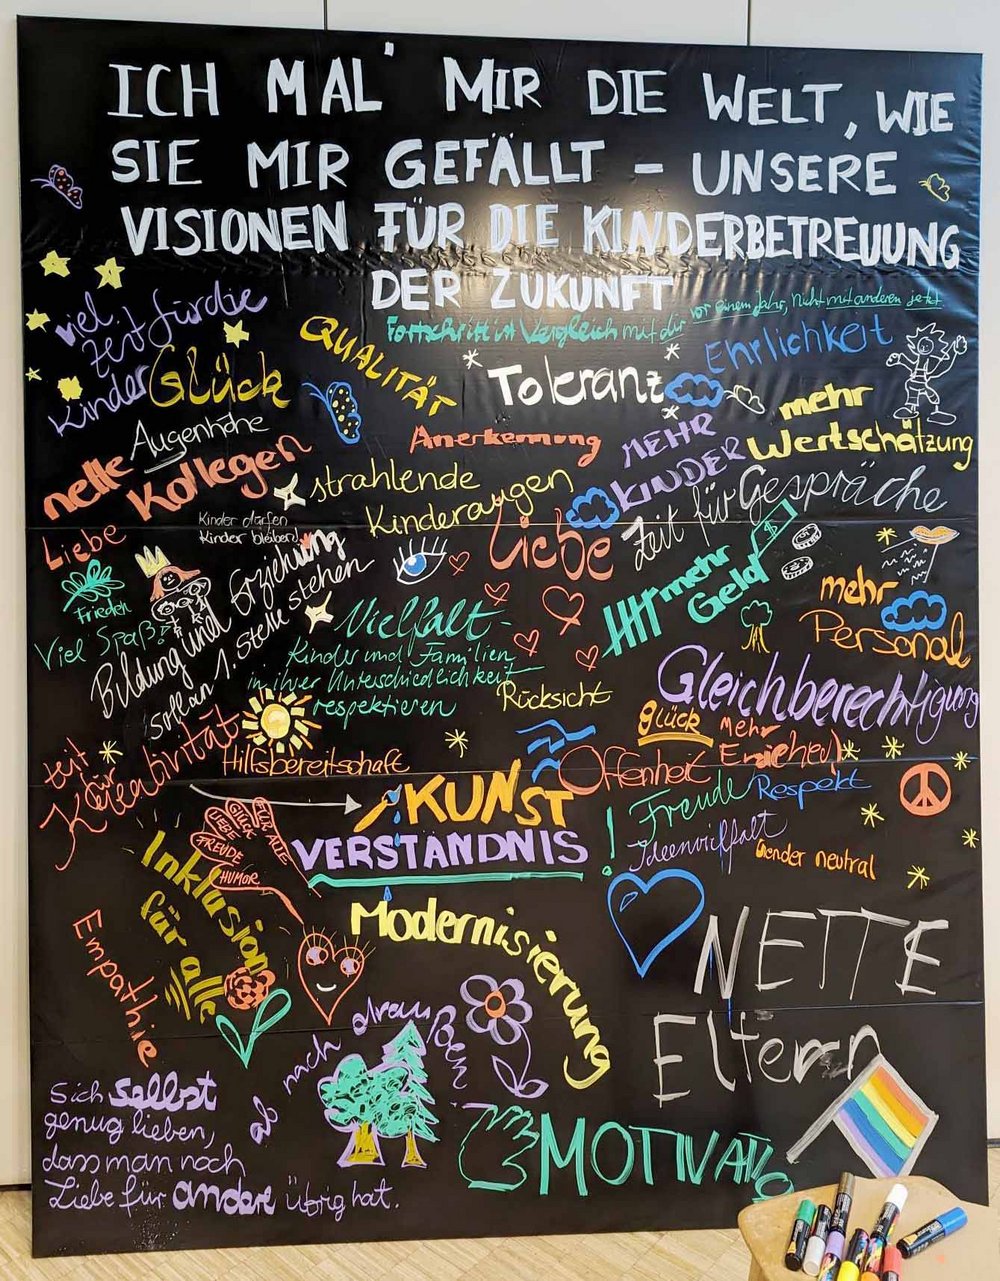 ICH MAL' MIR DIE WELT, WIE
SIE MIR GEFÄLLT - UNSERE
VISIONEN FÜR DIE KINDERBETREUUNG
DER ZUKUNFT
viel
Zeit für die
Kinder
Glück
QUALITÄT
Fortschritt im Vergleich mit dir vor einem Jahr, nicht mit anderen jetzt
Toleranz
Ehrlichkeit
mehr
Wertschätzung
Augenhöhe
nette
Kollegen
Anerkennung
MEHR
KINDER
strahlende
Kinderaugen
Zeit für Gespräche
Liebe
Kinder dürfen
Kinder bleiben!
Liebe
mehr
Geld
$
Frieden
Viel Spaß!
Bildung und Erziehung
sollan 1. Stelle stehen
Vielfalt-
Kinder und Familien
in ihrer Unterschiedlichkeit
respektieren
mehr
Personal
Rücksicht
Gleichberechtigung
Zeit
für
Kreativität
Hilfsbereitschaft
glück
Mehr
Erzieher!
Offenheit
KUNST
VERSTÄNDNIS
! Freude
Respekt
Ideenvielfalt
Gender neutral
GLÜCK
LIEBE
FREUDE
HUMOR
FÜR ALLE
Inklusion
für
alle
Modernisierung
NETTE
Eltern
Empathie
ab nach draußen
Sich selbst
genug lieben,
dass man noch
Liebe für andere übrig hat.
MOTIVATIO